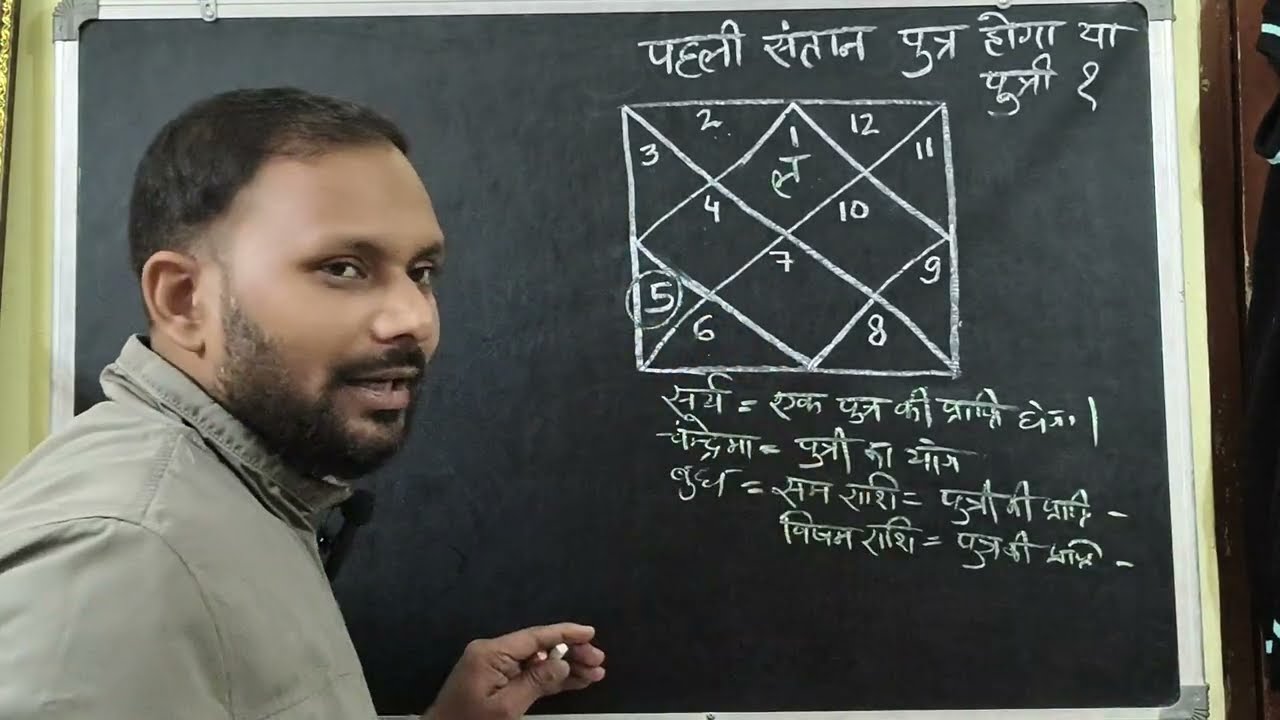 पहली संतान पुत्र होगा या
पुत्री १
2 1 12
3 11
ल
4 10
7 9
5
6 8
सूर्य = एक पुत्र की प्राप्ति
चन्द्रमा = पुत्री का योग
बुध = सम राशि = पुत्री की प्राप्ति -
विषम राशि = पुत्र की प्राप्ति -